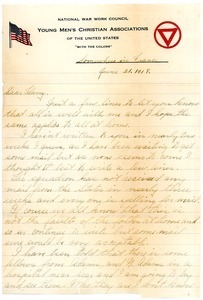 NATIONAL WAR WORK COUNCIL
YOUNG MEN'S CHRISTIAN ASSOCIATIONS
OF THE UNITED STATES
"WITH THE COLORS"
Somewhere in France
June 21, 1918.
Dear Harry:
Just a few lines to let you know
that all is well with me and I hope the
same applies to all at home.
I haven't written to you in nearly two
weeks I guess, as I have been waiting to get
some mail but we now seem to come I
thought I best to write a few lines.
The squadron has not received any
mail from the States in nearly three
weeks and every one is yelling for mail.
Of course we all know that this is
not the fault of the folks at home and
so we continue to wait but some mail
sure would be very acceptable.
I have been told that they in some
fellows from Adams and in a
hospital near here and I am going to try
and see them. I hope they are I will know